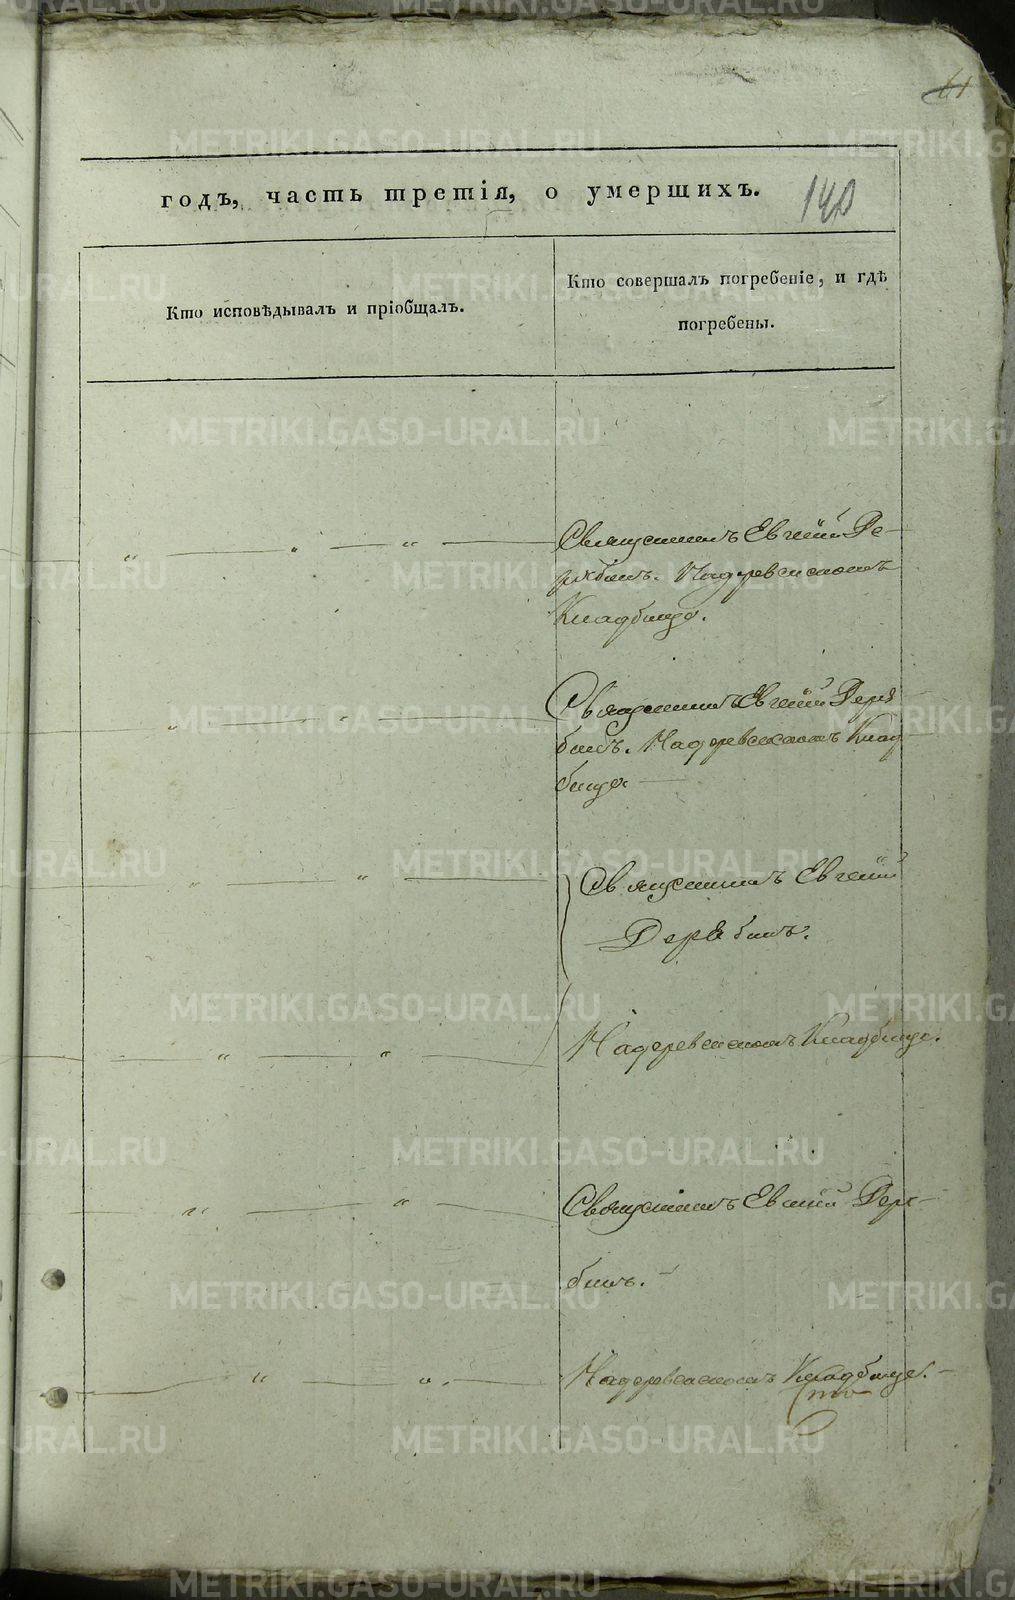 61
годъ, часть третія, о умершихъ. 140
Кто исповѣдывалъ и пріобщалъ.
Кто совершалъ погребеніе, и гдѣ
погребены.
Священникъ Евгеній Де-
рябинъ. На деревенскомъ
Кладбище.
Священникъ Евгеній Деря
бинъ. На деревенскомъ Клад
бище.
Священникъ Евгеній
Дерябинъ.
На деревенскомъ Кладбище.
Священникъ Евгеній Деря-
бинъ.
На деревенскомъ Кладбище.
METRIKI.GASO-URAL.RU